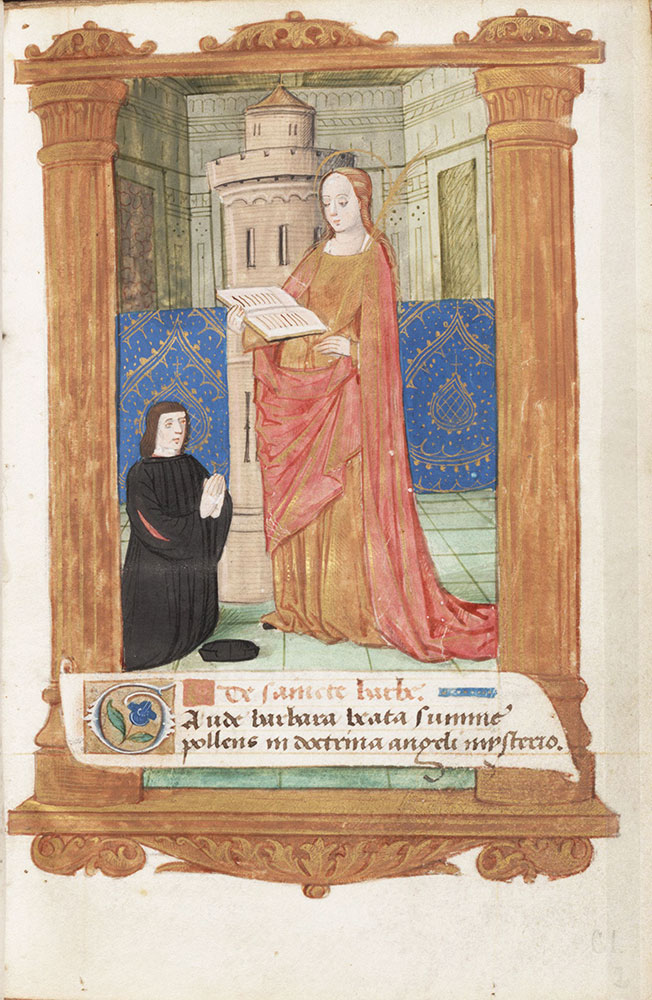 De sancte barbe.
Gaude barbara beata summe
pollens in doctrina angeli mysterio.